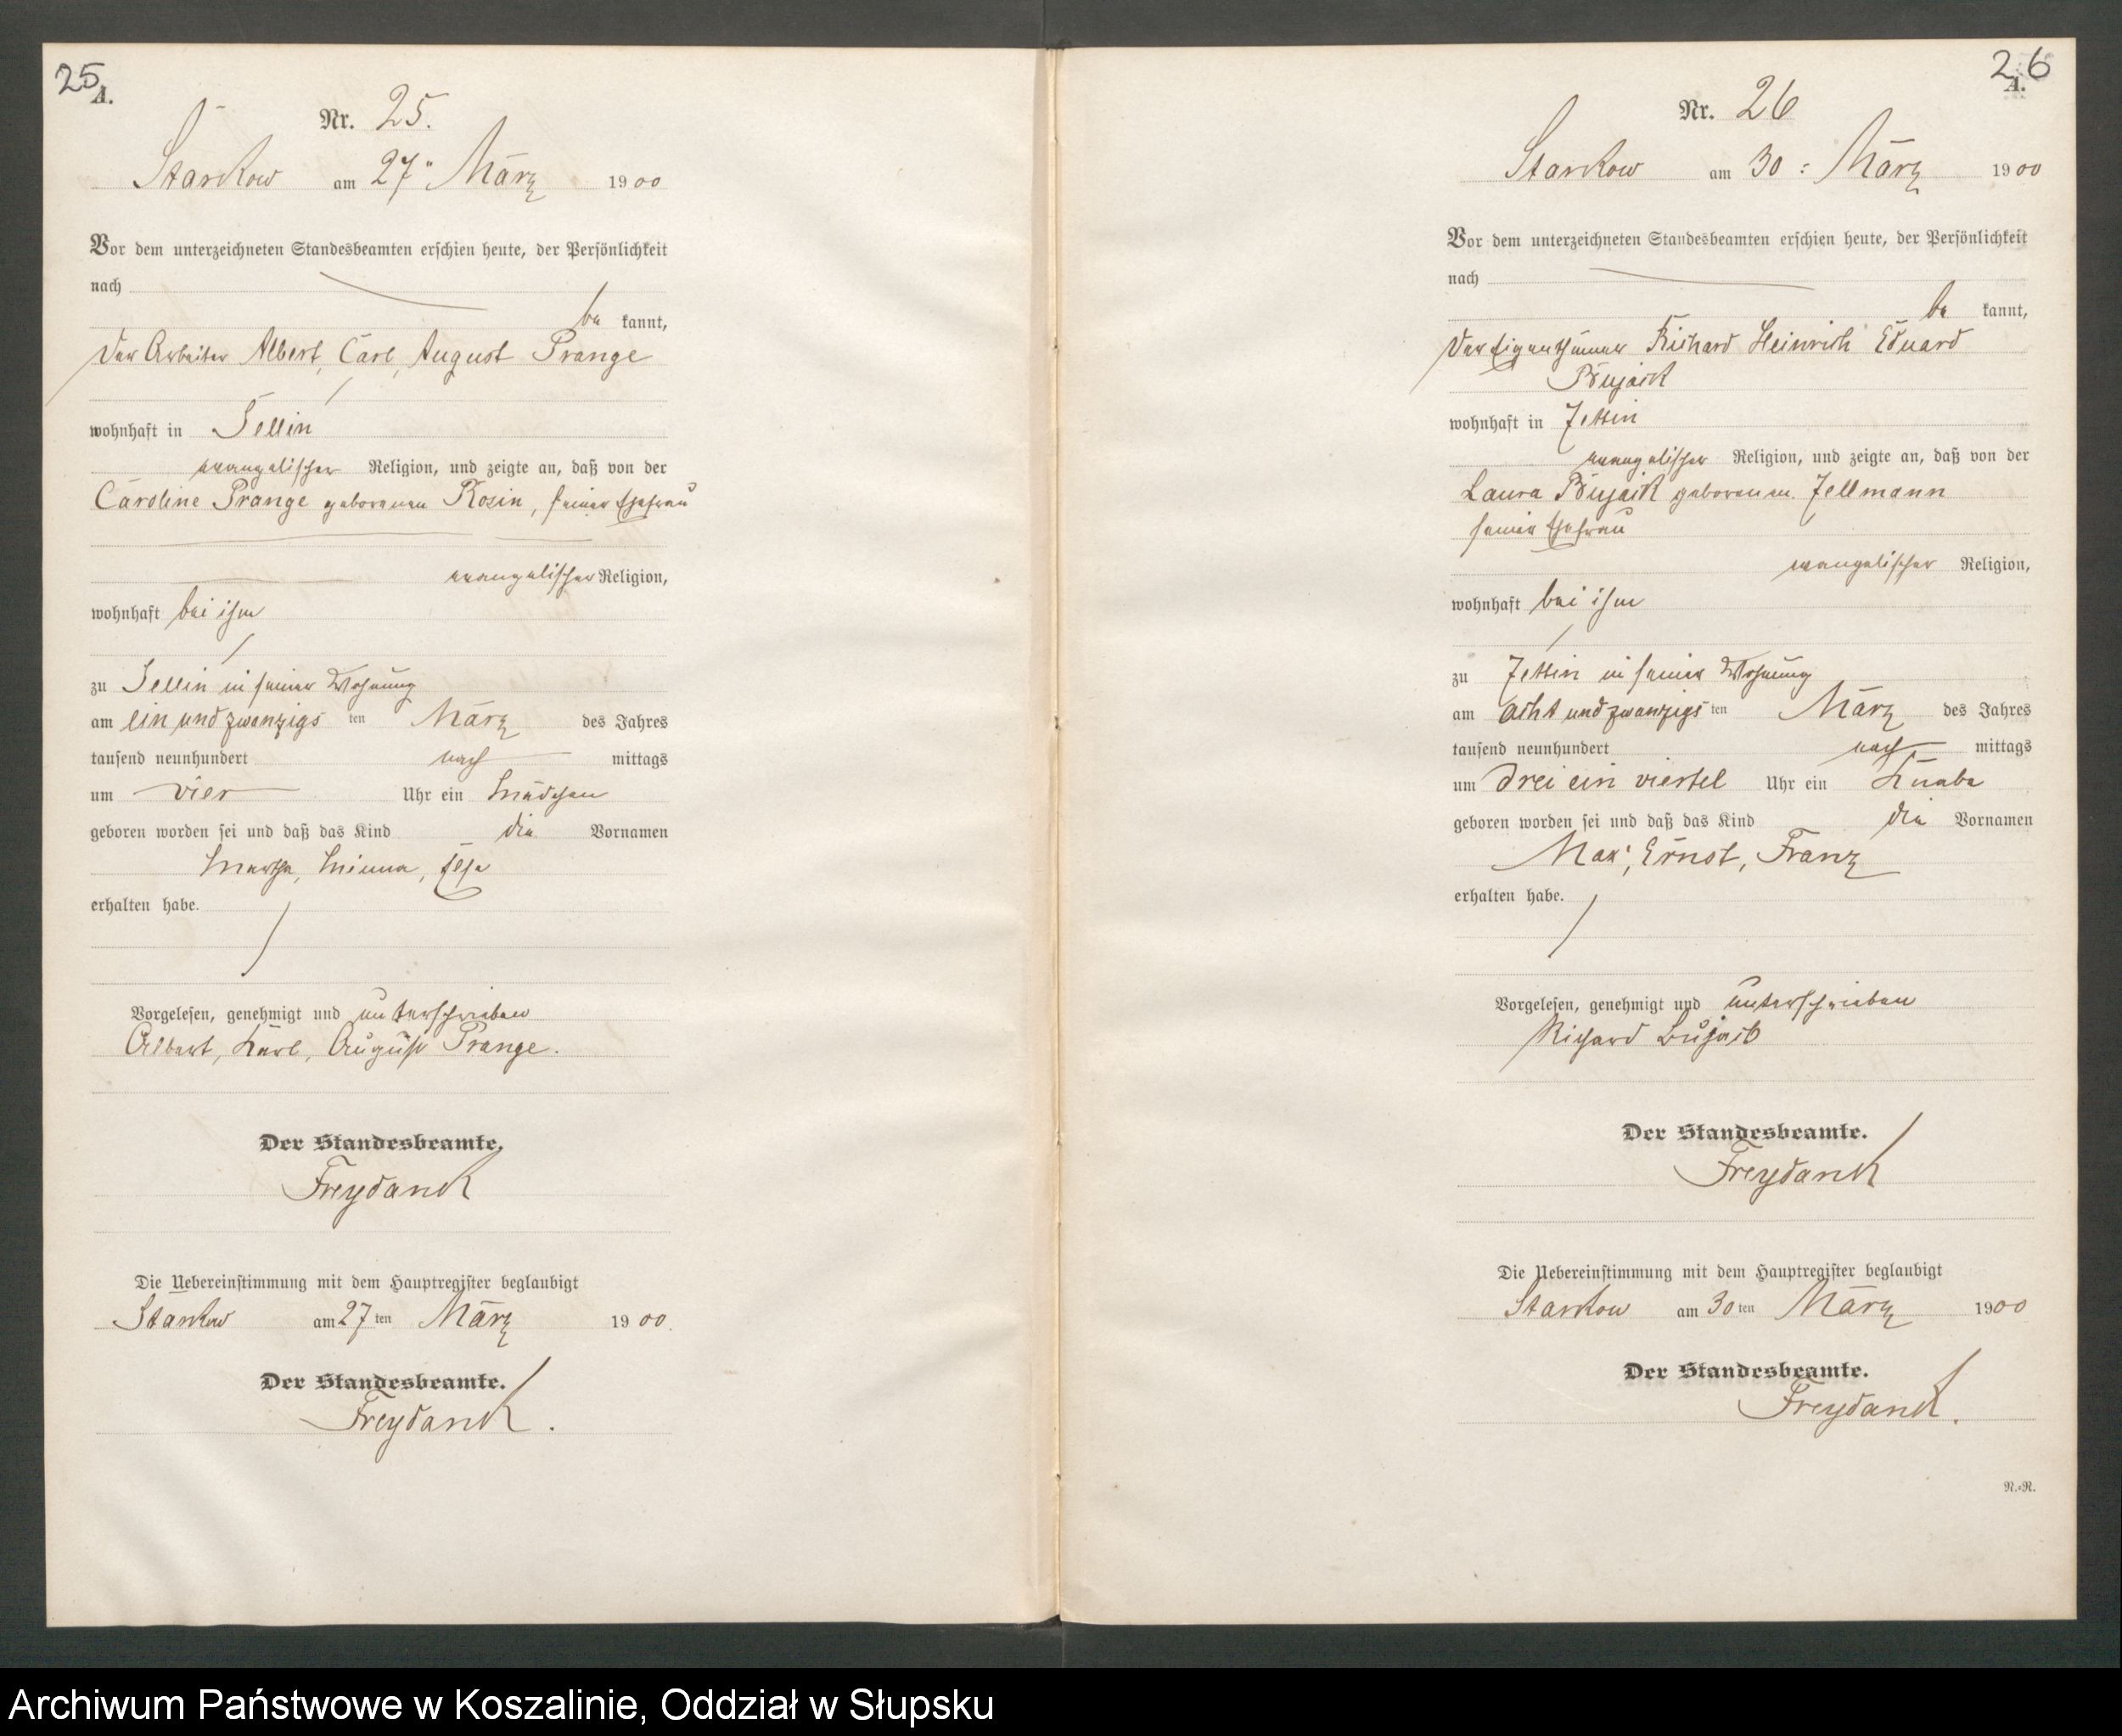 25
A.
Nr. 25.
Starkow am 27" März 1900
Vor dem unterzeichneten Standesbeamten erschien heute, der Persönlichkeit
nach
be kannt,
der Arbeiter Albert, Carl, August Prange
wohnhaft in Sellin
evangelischer Religion, und zeigte an, daß von der
Caroline Prange geborenen Rosin, seiner Ehefrau
evangelischer Religion,
wohnhaft bei ihm
zu Sellin in seiner Wohnung
am ein und zwanzigs ten März des Jahres
tausend neunhundert nach mittags
um vier Uhr ein Mädchen
geboren worden sei und daß das Kind die Vornamen
Martha, Minna, Else
erhalten habe.
Vorgelesen, genehmigt und unterschrieben
Albert, Karl, August Prange.
Der Standesbeamte.
Freydanck
Die Uebereinstimmung mit dem Hauptregister beglaubigt
Starkow am 27 ten März 1900.
Der Standesbeamte.
Freydanck.
26
A.
Nr. 26
Starkow am 30 : März 1900
Vor dem unterzeichneten Standesbeamten erschien heute, der Persönlichkeit
nach
be kannt,
der Eigenthümer Richard Heinrich Eduard
wohnhaft in Jettin
evangelischer Religion, und zeigte an, daß von der
Laura geborenen Zellmann
seiner Ehefrau
evangelischer Religion,
wohnhaft bei ihm
zu Jettin in seiner Wohnung
am acht und zwanzigs ten März des Jahres
tausend neunhundert nach mittags
um drei ein viertel Uhr ein Knabe
geboren worden sei und daß das Kind die Vornamen
Max, Ernst, Franz
erhalten habe.
Vorgelesen, genehmigt und unterschrieben
Richard Bujack
Der Standesbeamte.
Freydanck
Die Uebereinstimmung mit dem Hauptregister beglaubigt
Starkow am 30 ten März 1900
Der Standesbeamte.
Freydanck.
N.-N.
Archiwum Państwowe w Koszalinie, Oddział w Słupsku